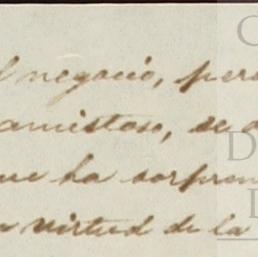 l negocio, per
amistoso, se a
ue ha sorpren
virtud de la